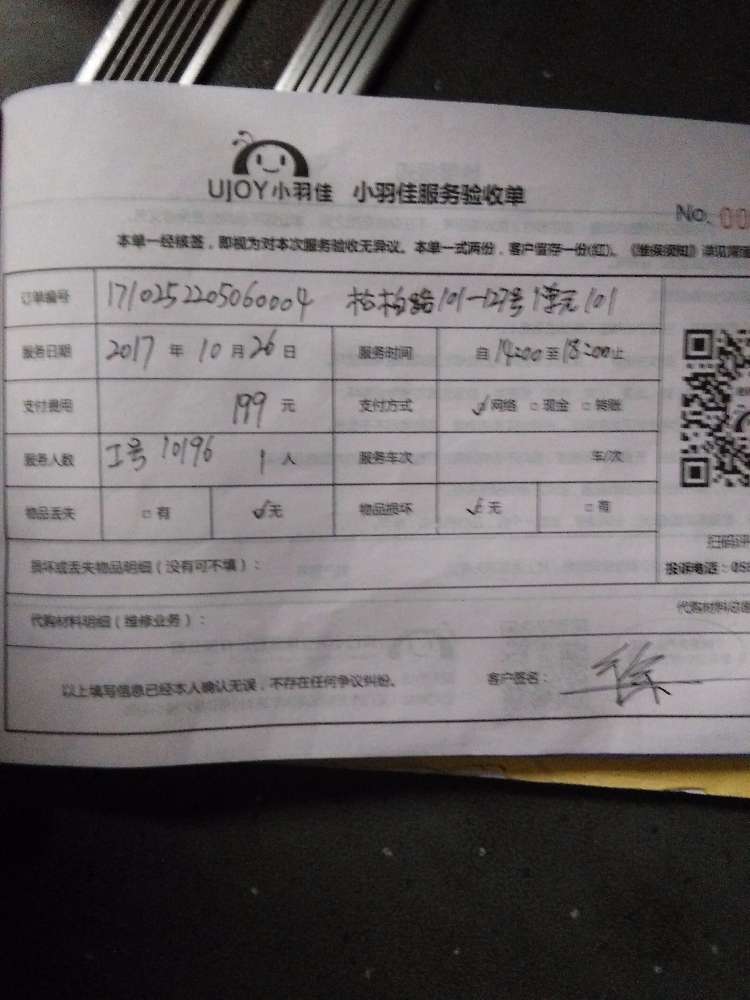 UJOY小羽佳 小羽佳服务验收单
No. 00
本单一经核签，即视为对本次服务验收无异议。本单一式两份，客户留存一份(红)。《维保须知》详见
订单编号 1710252205060004 松柏路101-127号1单元101
服务日期 2017年10月26日 服务时间 自14:00至18:00止
支付费用 199元 支付方式 ☑网络 □现金 □转账
服务人数 工号10196 1人 服务车次 车/次
物品丢失 □有 ☑无 物品损坏 ☑无 □有
扫码评
损坏或丢失物品明细（没有可不填）：
投诉电话：05
代购材料明细（维修业务）：
代购材料
以上填写信息已经本人确认无误，不存在任何争议纠纷。 客户签名：